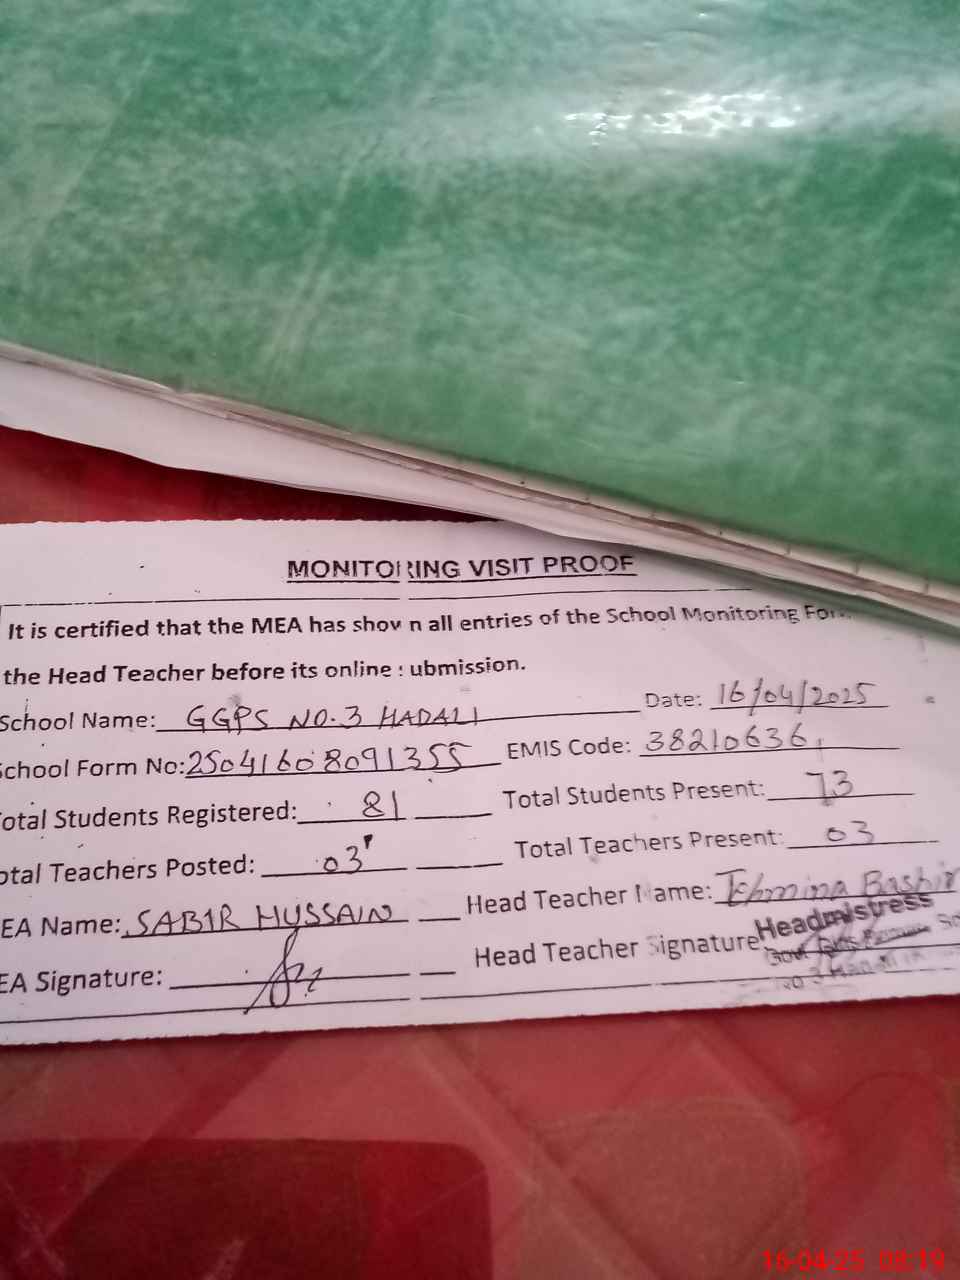 MONITORING VISIT PROOF
It is certified that the MEA has shov n all entries of the School Monitoring For
the Head Teacher before its online submission.
School Name: GGPS NO.3 HADALI Date: 16/04/2025
School Form No: 25041608091355 EMIS Code: 38210636
otal Students Registered: 81 Total Students Present: 73
otal Teachers Posted: 03 Total Teachers Present: 03
EA Name: SABIR HUSSAIN Head Teacher Name: Tehmina Bashir
EA Signature: Head Teacher Signature
Headmistress
Govt
16-04-25 08:19